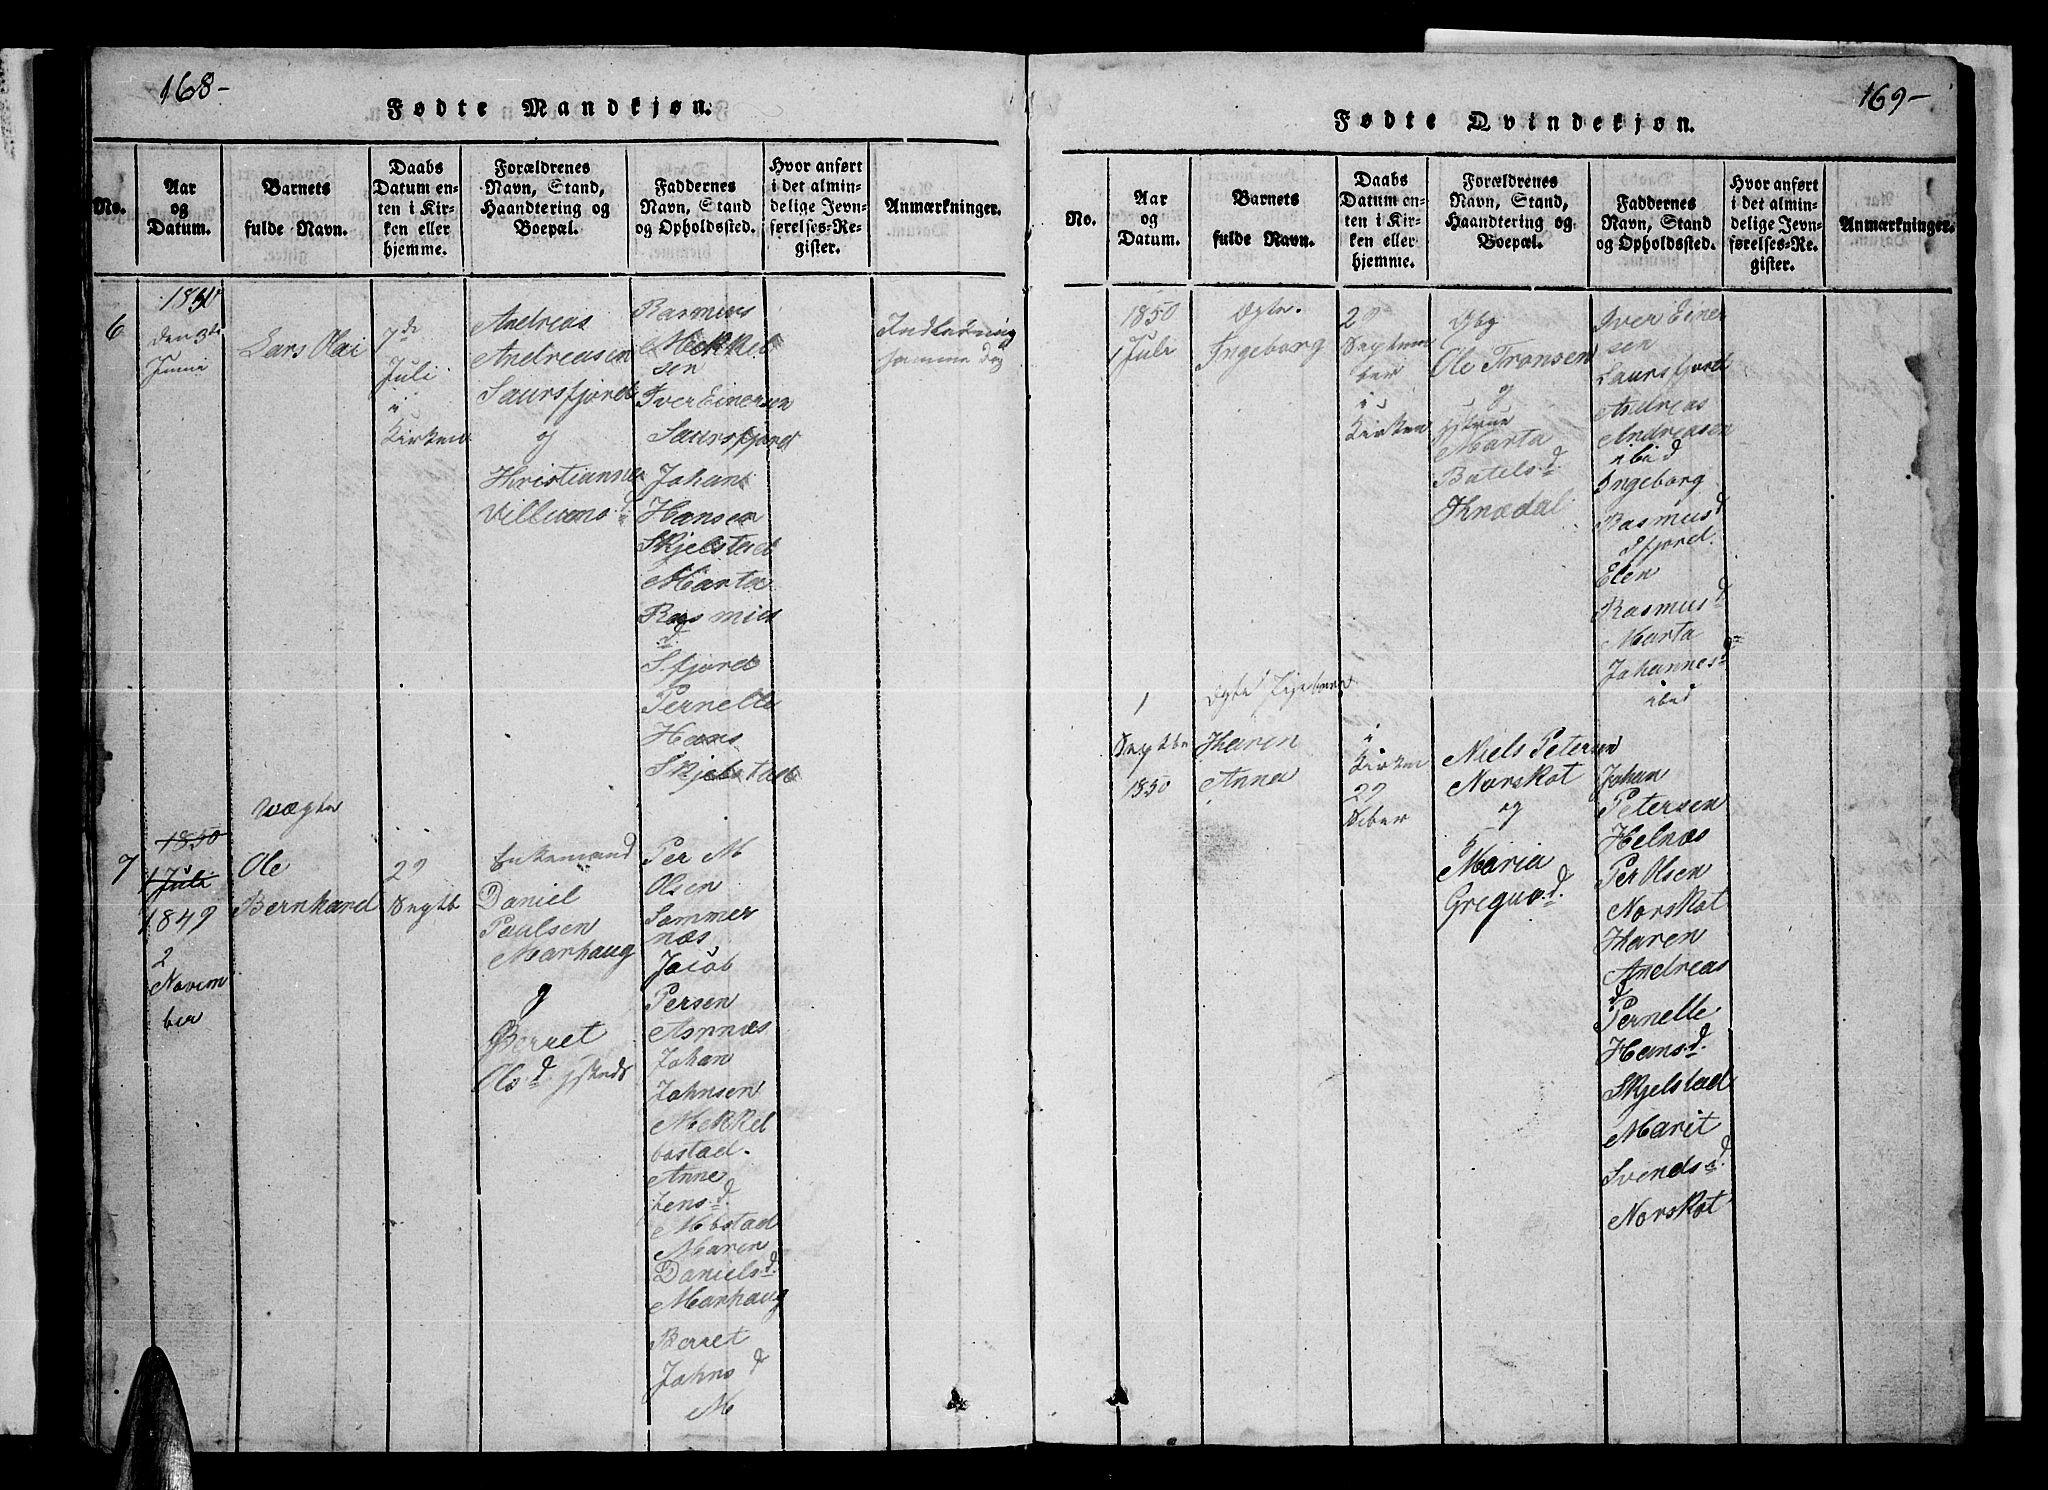 168-
Fødte Mandkjøn.
No.
Aar
og
Datum.
Barnets
fulde Navn.
Daabs
Datum en-
ten i Kir-
ken eller
hjemme.
Forældrenes
Navn, Stand,
Haandtering og
Boepæl.
Faddernes
Navn, Stand
og Opholdssted.
Hvor anført
i det almin-
delige Jevn-
førelses-Re-
gister.
Anmærkninger.
6
1850
den 3de
Junii
Lars Olai
7de
Juli
i
Kirken
Andreas
Andreasen
Saursfjord
og
Kristianna
Villums d
Rasmus
Mekkel
sen
Iver Einersen
Saursfjord
Johan
Hansen
Skjelstad
Marta
Rasmus
d
Sfjord
Pernelle
Hans
Skjelstad
Indledning
samme Dag
Uægte
7
1850
1 Juli
1849
2
Novem
ber
Ole
Bernhard
29
Septb
Enkemand
Daniel
Paulsen
Marhaug
og
Berret
Ols.d.
Per M
Olsen
Sommer
næs
Jacob
Persen
Aspnæs
Johan
Johnsen
Mekkel
bostad.
Anne
Jens.d.
Mbstad
Maren
Daniels.d.
Marhaug
Berret
Johns d
M
169-
Fødte Qvindekjøn.
No.
Aar
og
Datum.
Barnets
fulde Navn.
Daabs
Datum en-
ten i Kir-
ken eller
hjemme.
Forældrenes
Navn, Stand,
Haandtering og
Boepæl.
Faddernes
Navn, Stand
og Opholdssted.
Hvor anført
i det almin-
delige Jevn-
førelses-Re-
gister.
Anmærkninger.
1850
1 Juli
Ægte.
Ingeborg
29
Septem
ber
i
Kirken
Ole Tronsen
og
Marta
Batels.d.
Knædal
Iver Einer
sen
Saursfjord
Andreas
Andreasen
ibid
Ingeborg
Rasmus d
Sfjord.
Elen
Rasmus d
Marta
Johannes d
ibid
1
Septbr
1850
Ægte
Karen
Anna
i
Kirken
29
Sber
Niels Petersen
Norskot
og
Maria
Gregus.d.
Johan
Petersen
Helnæs
Per Olsen
Norskot
Karen
Andreas
d
Pernelle
Hans.d.
Skjelstad
Marit
Svends.d.
Norskot